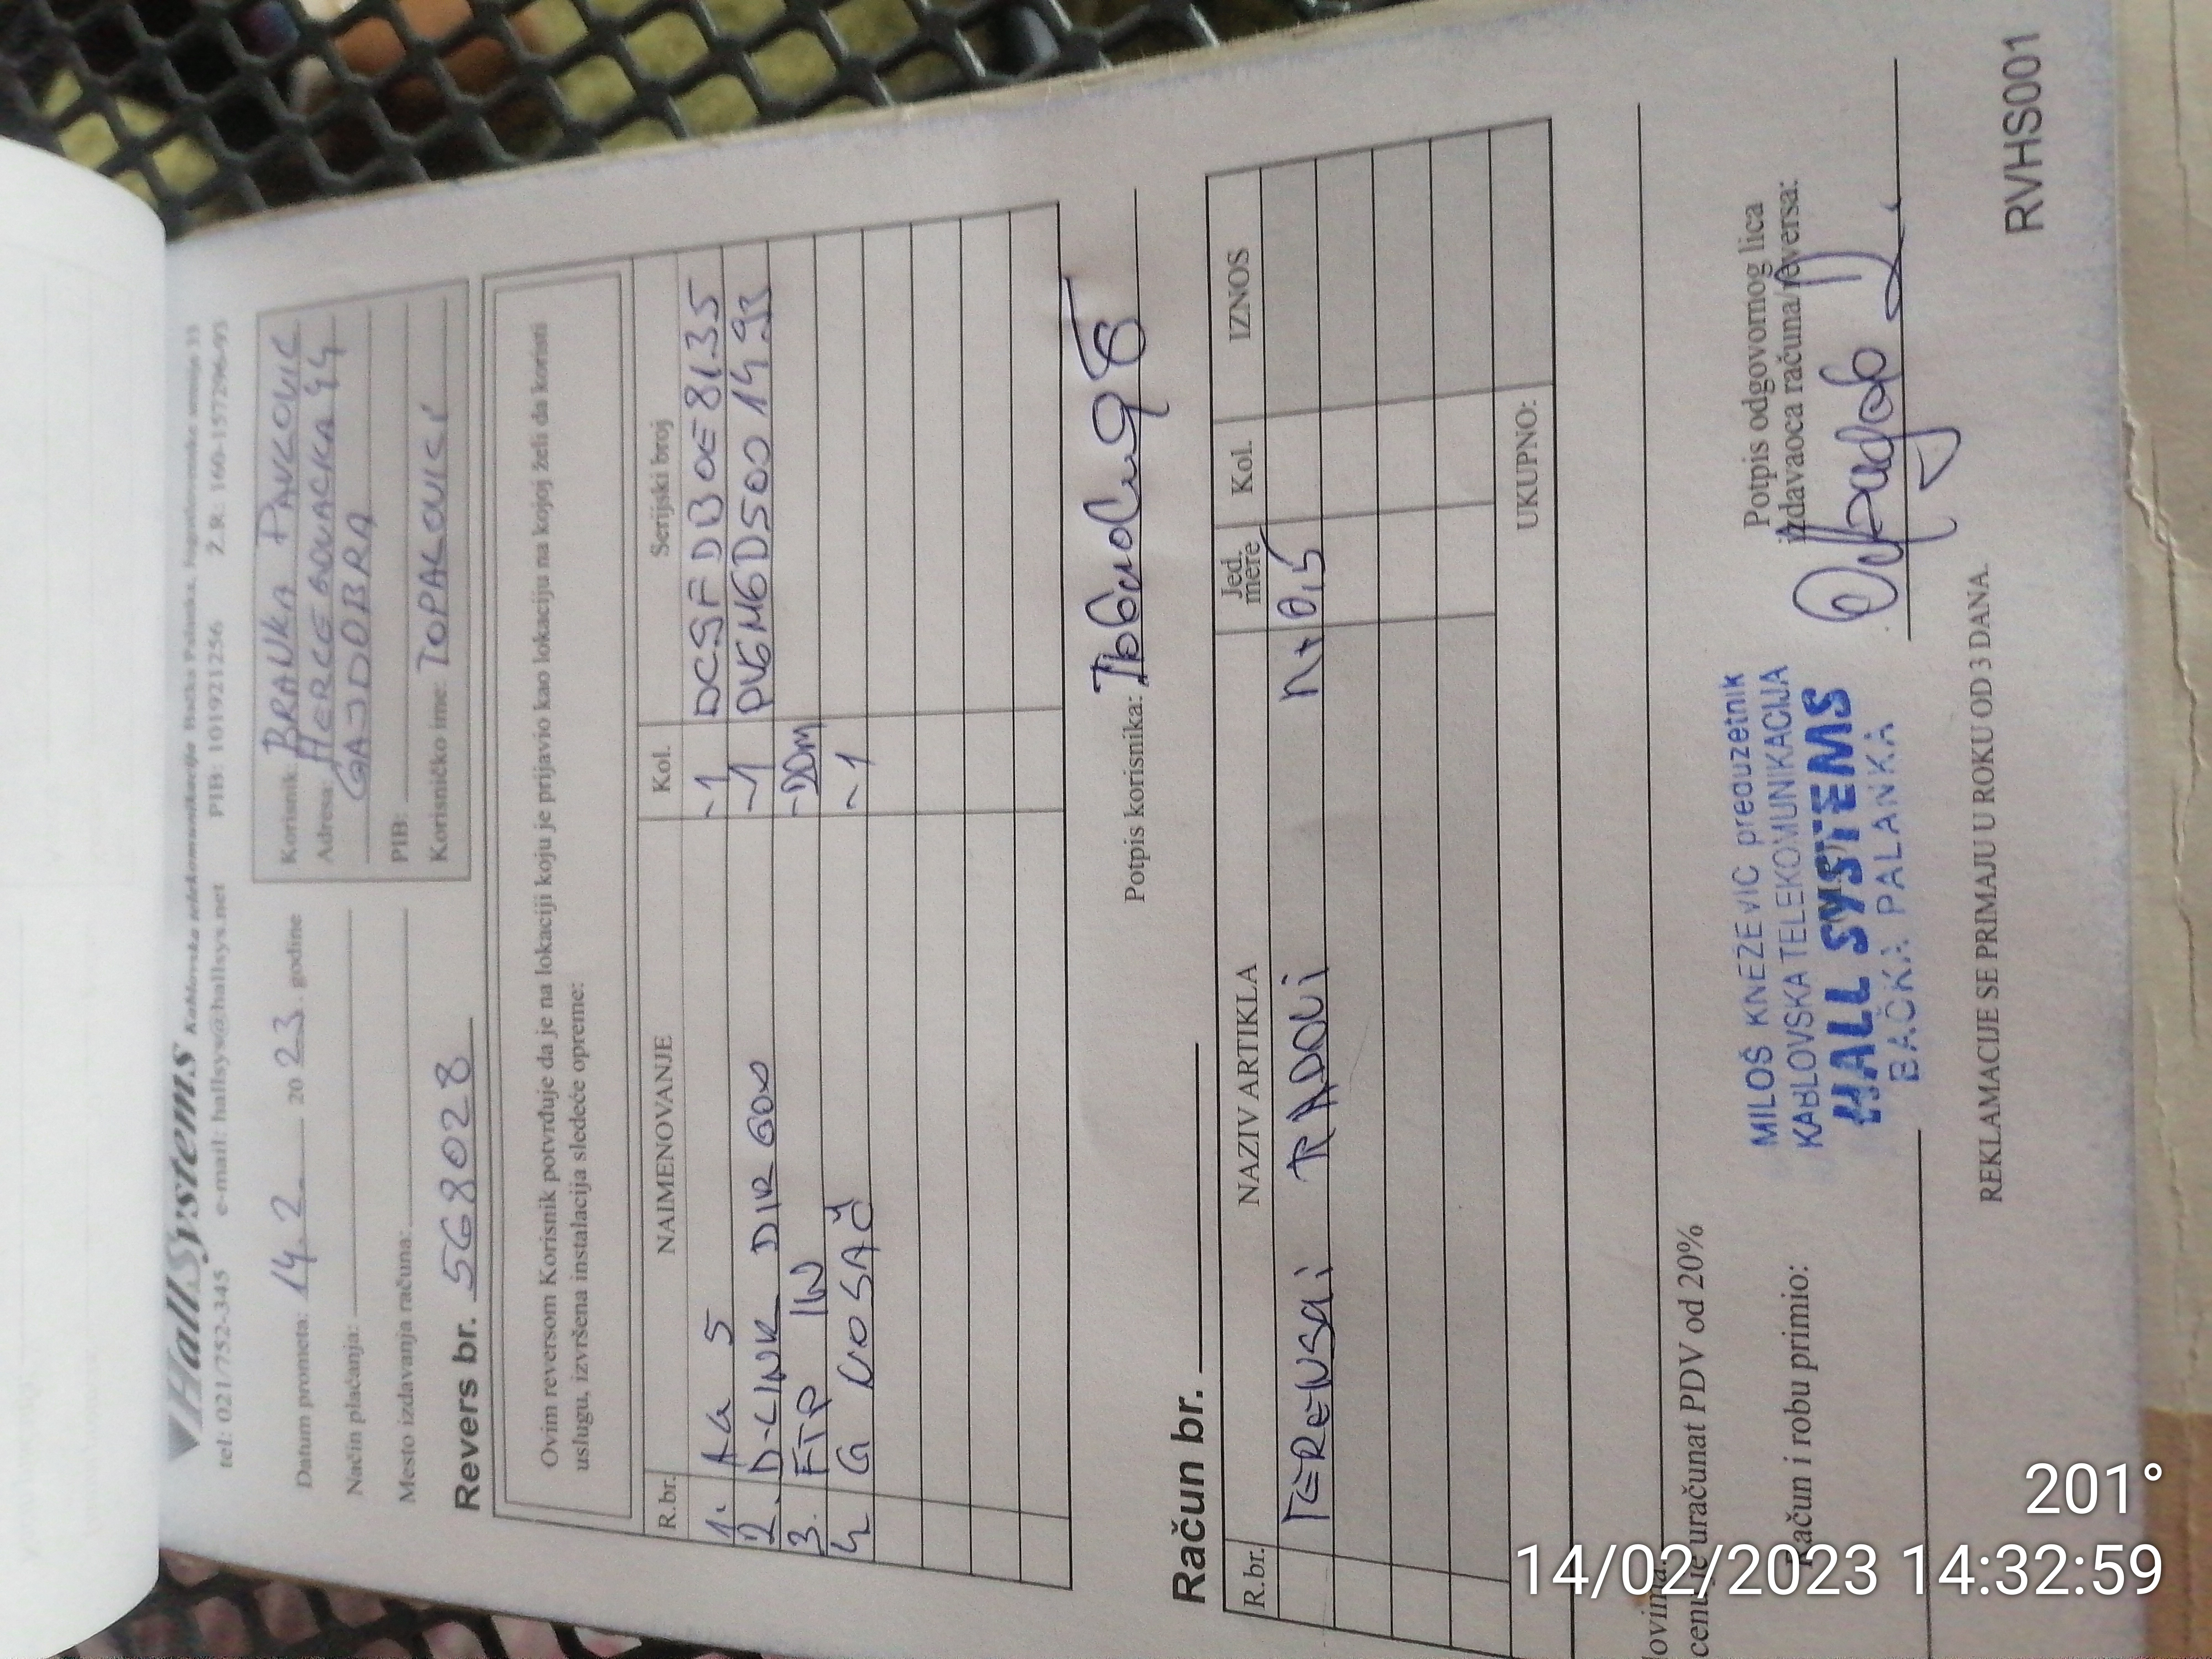 HallSystems Kablovske telekomunikacije Bačka Palanka, Jugoslovenske armije 33
tel: 021/752-345 e-mail: hallsys@hallsys.net PIB: 101921256 Ž.R: 160-157296-93
Datum prometa: 14.2. 2023. godine
Način plaćanja:
Mesto izdavanja računa:
Korisnik: BRANKA PAVKOVIĆ
Adresa: HERCEGOVAČKA 94
GAJDOBRA
PIB:
Korisničko ime: TOPALOVICI
Revers br. 568028
Ovim reversom Korisnik potvrđuje da je na lokaciji koju je prijavio kao lokaciju na kojoj želi da koristi
uslugu, izvršena instalacija sledeće opreme:
R.br. NAIMENOVANJE Kol. Serijski broj
1. AG 5 ~1 DC9FDB0E8135
2. D-LINK DIR 600 ~1
3. FTP IN
4 G NOSAČ ~1
Potpis korisnika:
Račun br.
R.br. NAZIV ARTIKLA Jed. mere Kol. IZNOS
TERENSKI RADOVI
UKUPNO:
cenu je uračunat PDV od 20%
Račun i robu primio:
MILOŠ KNEŽEVIĆ preduzetnik
KABLOVSKA TELEKOMUNIKACIJA
HALL SYSTEMS
BAČKA PALANKA
Potpis odgovornog lica
izdavaoca računa/reversa:
REKLAMACIJE SE PRIMAJU U ROKU OD 3 DANA.
RVHS001
201°
14/02/2023 14:32:59